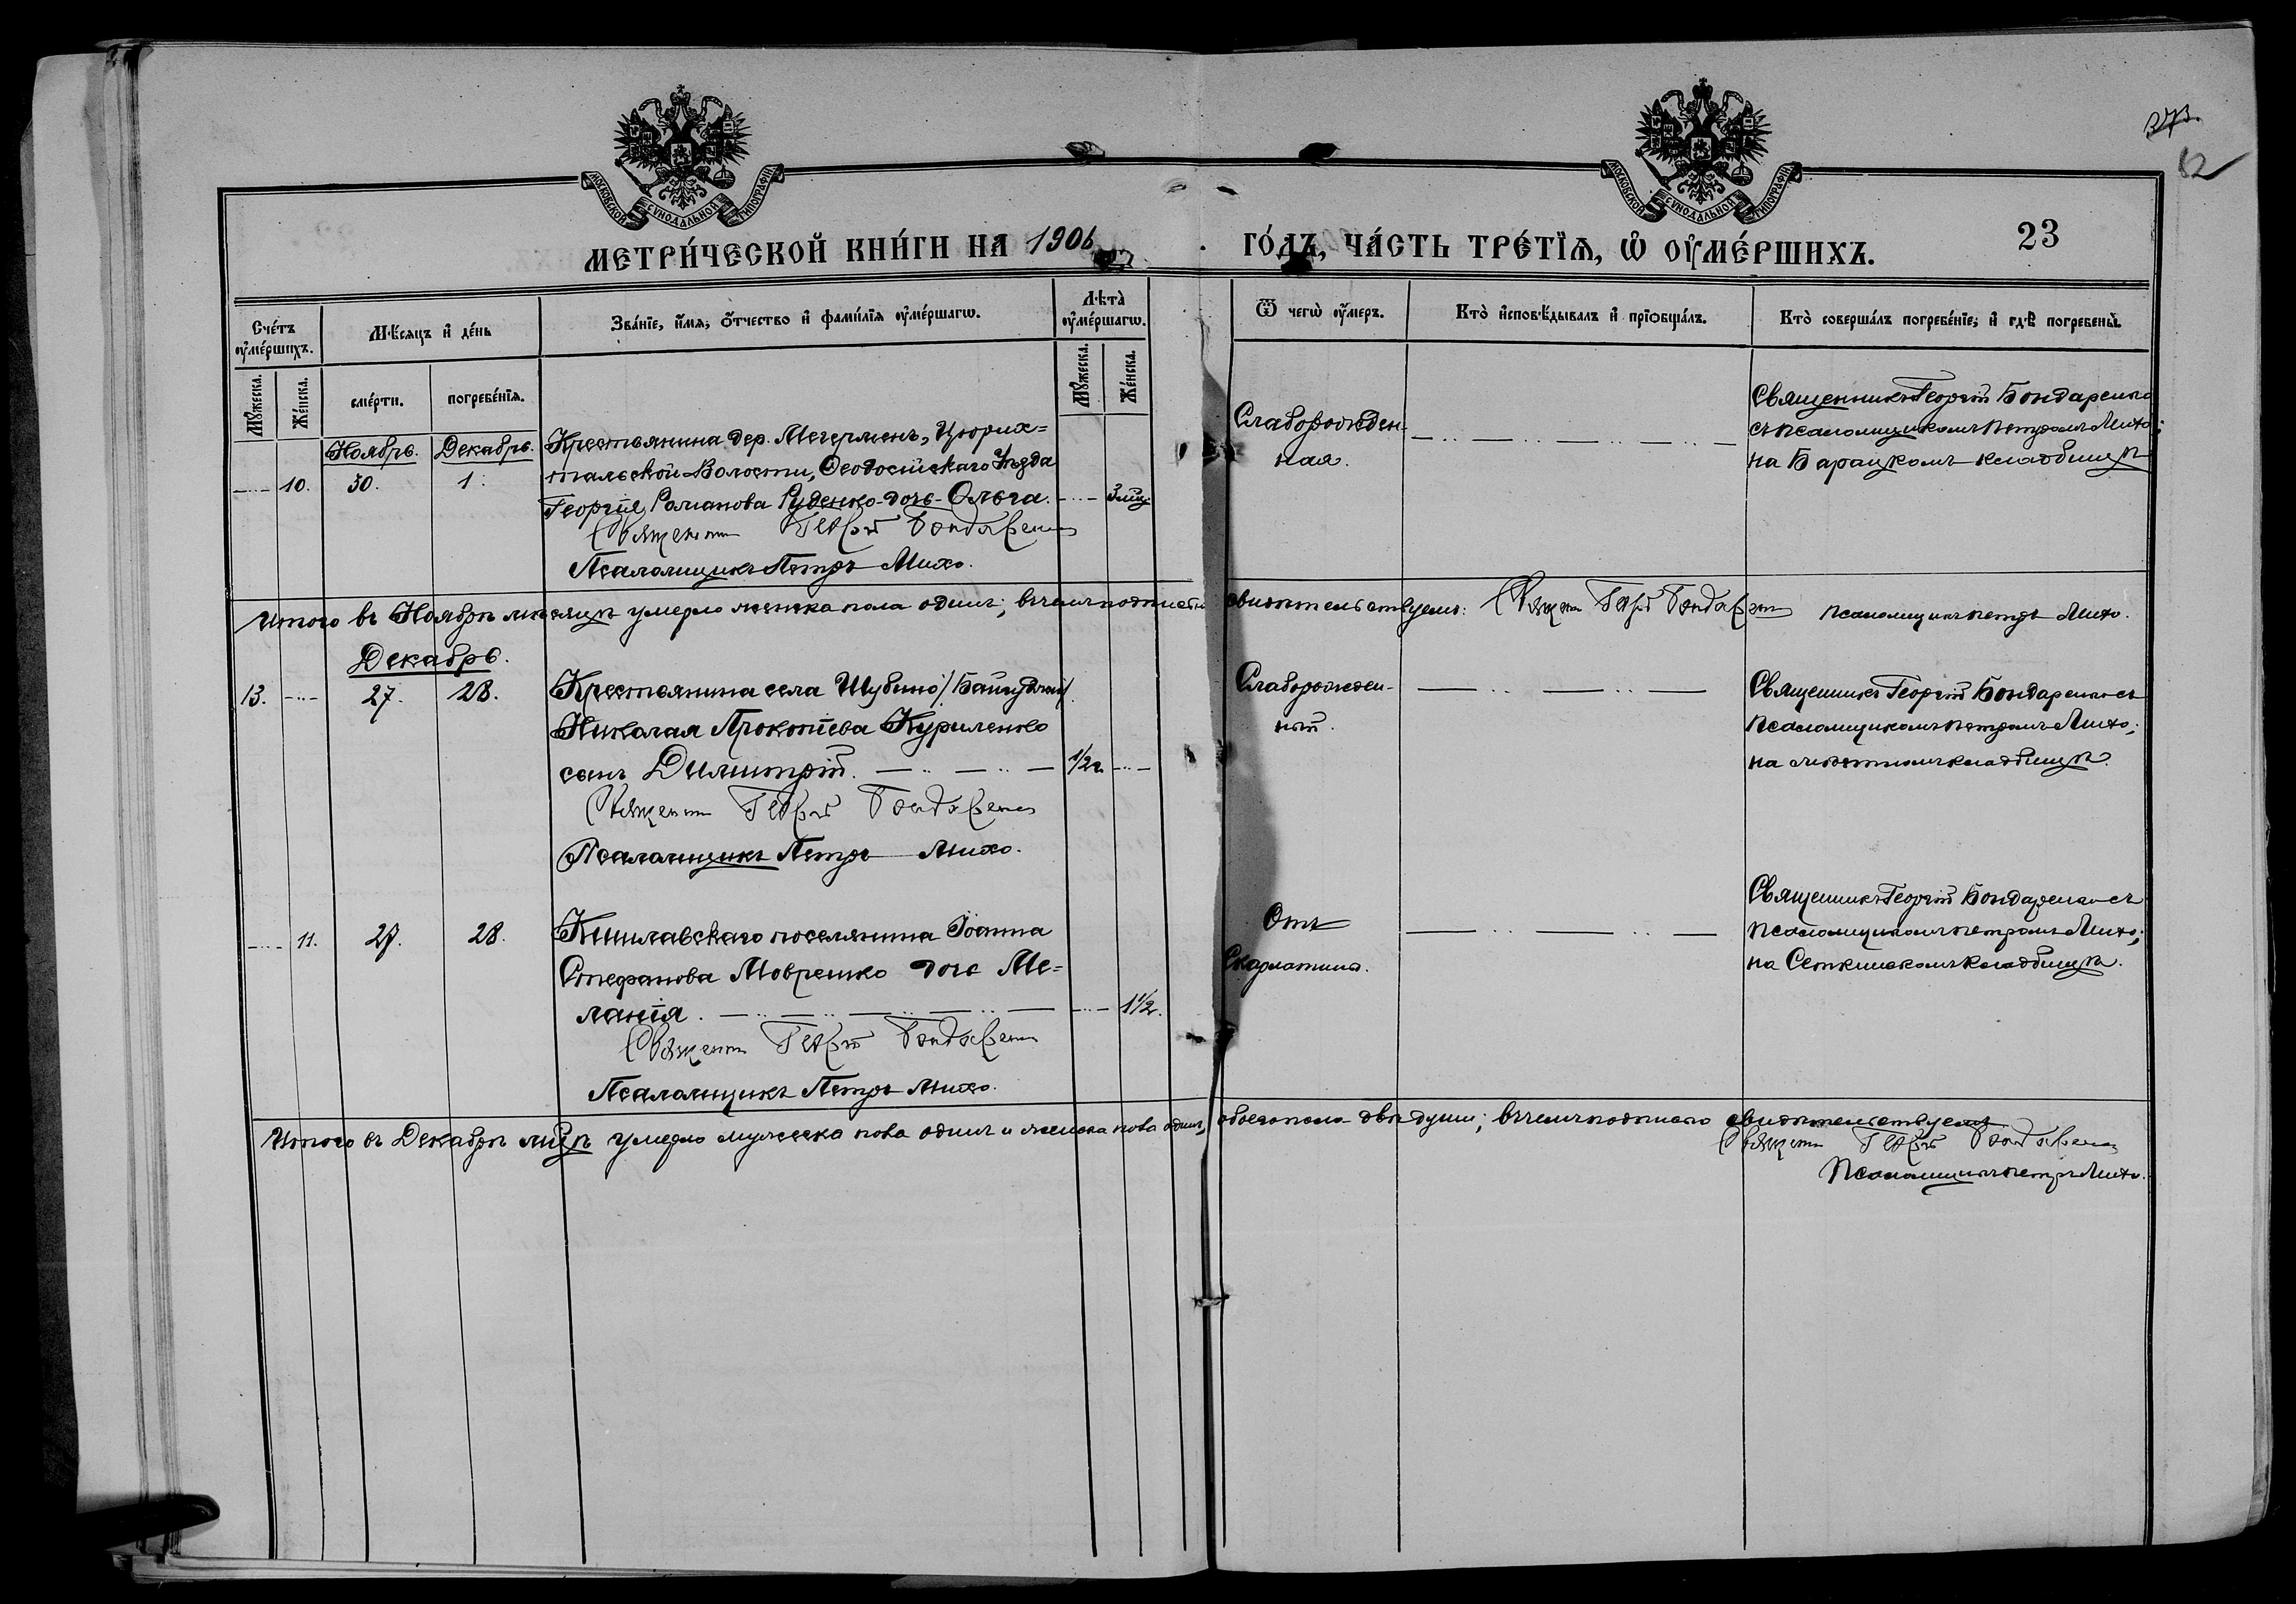 МОСКОВСКОЙ СѴНОДАЛЬНОЙ ТИПОГРАФІИ
МОСКОВСКОЙ СѴНОДАЛЬНОЙ ТИПОГРАФІИ
373.
82
МЕТРИ́ЧЕСКОЙ КНИ́ГИ НА 1906
ГО́ДЪ, ЧА́СТЬ ТРЕ́ТІѦ, Ѡ҆ ОУ҆МЕ́РШИХЪ.
23
Сче́тъ оу҆ме́ршихъ.
Мѣ́сѧцъ и҆ де́нь
Зва́нїе, и҆́мѧ, ѻ҆́тчество и҆ фами́лїѧ оу҆ме́ршагѡ.
Лѣта̀ оу҆ме́ршагѡ.
Ѿ чегѡ̀ оу҆́меръ.
Кто̀ и҆сповѣ́дывалъ и҆ прїѡбща́лъ.
Кто̀ соверша́лъ погребе́нїе, и҆ гдѣ̀ погребены̀.
Мꙋ́жеска.
Же́нска.
сме́рти.
погребе́нїѧ.
Мꙋ́жеска.
Же́нска.
Ноябрь. Декабрь.
10. 30. 1.
Крестьянина дер. Мегерменъ, Цюрих=
тальской Волости, Ѳеодосійскаго Уѣзда
Георгія Романова Руденко дочь Ольга. 3 мѣц.
Священникъ Георгій Бондаренко
Псаломщикъ Петръ Михо.
Слаборожден-
ная.
Священникъ Георгій Бондаренко
съ псаломщикомъ Петромъ Михо;
на Барацкомъ кладбищѣ
Итого въ Ноябрѣ мѣсяцѣ умерло женска пола одинъ; въ чемъ подписью свидѣтельствуемъ: Священ. Георгій Бондаренко псаломщикъ Петръ Михо.
Декабрь.
13. 27. 28.
Крестьянина села Шубино
Николая Прокопіева Куриленко
сынъ Димитрій. 1/2 г.
Священникъ Георгій Бондаренко
Псаломщикъ Петръ Михо.
Слаборожден-
ный.
Священникъ Георгій Бондаренко съ
псаломщикомъ Петромъ Михо;
на мѣстномъ кладбищѣ.
11. 27. 28.
Кишлавскаго поселянина Іоанна
Стефанова Моврешко дочь Ме=
ланія. 1 1/2.
Священникъ Георгій Бондаренко
Псаломщикъ Петръ Михо.
Отъ
Скарлатина.
Священникъ Георгій Бондаренко съ
псаломщикомъ Петромъ Михо;
на кладбищѣ.
Итого въ Декабрѣ мѣцѣ умерло мужеска пола одинъ и женска пола одинъ, обоего пола двѣ души; въ чемъ подписью свидѣтельствуемъ
Священникъ Георгій Бондаренко
Псаломщикъ Петръ Михо.